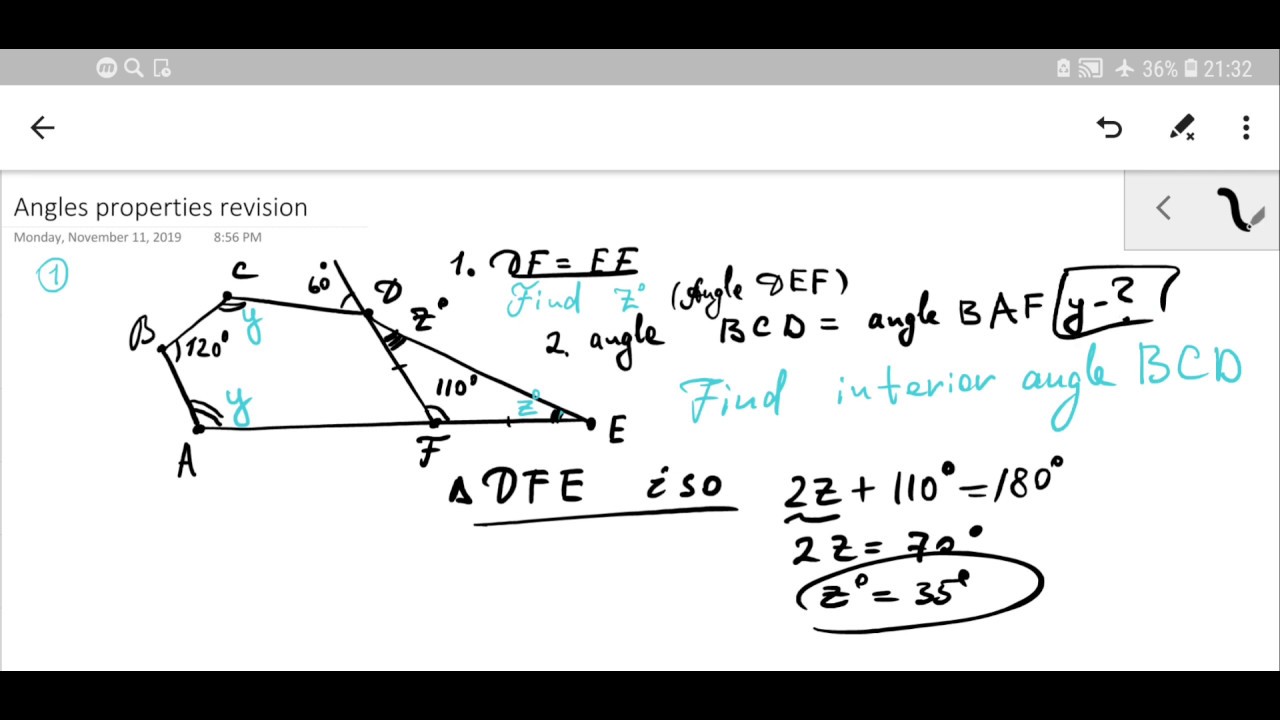 36% 21:32
Angles properties revision
Monday, November 11, 2019 8:56 PM
1
1. DF = EE
Find z° (Angle DEF)
2. angle BCD = angle BAF y-?
Find interior angle BCD
C
60°
D
y
z°
B
120°
110°
z°
y
A
F
E
△ DFE iso
2z + 110° = 180°
2z = 70°
z° = 35°